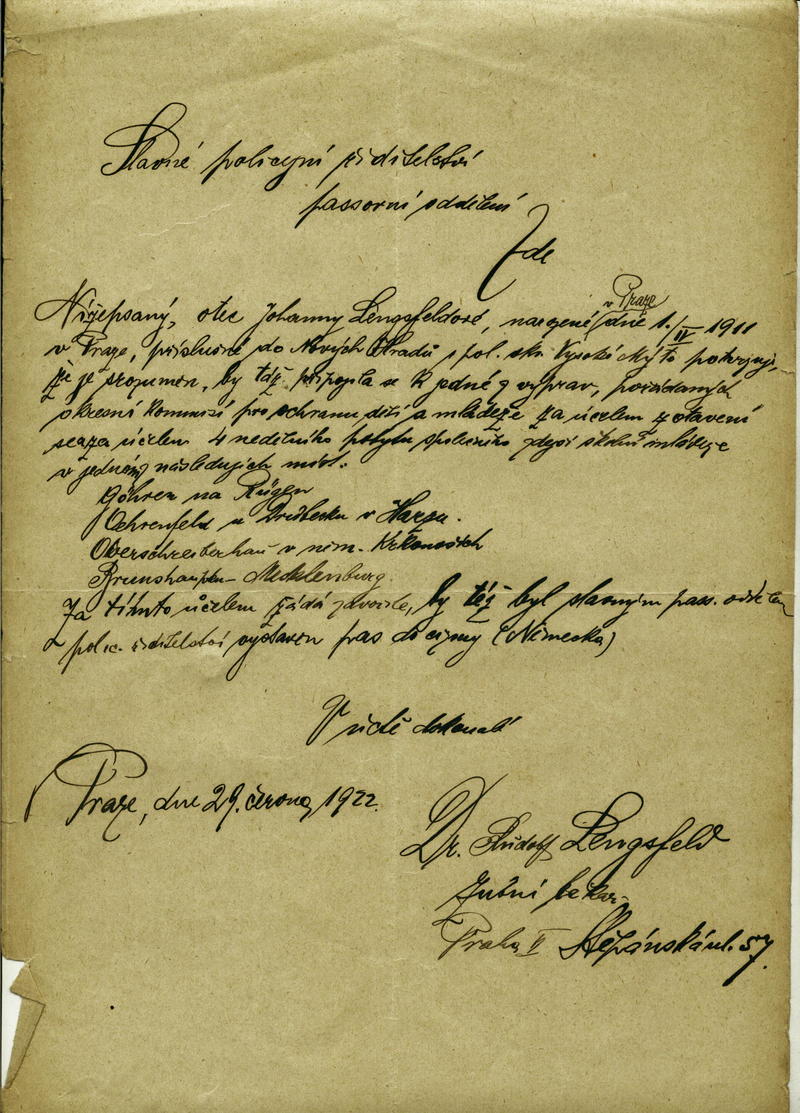 Slavné policejní ředitelství
passovní oddělení
Zde
v Praze
Nížepsaný, otec Johanny Lengsfeldové, narozené dne 1./IV 1911
v Praze, příslušné do Nových Hradů pol. okr. Vysoké Mýto potvrzuji,
že je srozuměn, by táž připojila se k jedné z výprav, pořádaných
okresní komissí pro ochranu dětí a mládeže za účelem zotavení
se a za účelem 4 nedělního pobytu společného zdejší školní mládeže
v jednom z následujích míst:
Göhren na Rügen
Oehrenfeld u Drübecku v Harzu.
Oberschreiberhau v něm. Krkonoších
Brunshaupten - Mecklenburg.
Za tímto účelem žádá zdvořile, by táž byl slavným pass. odděl.
polic. ředitelství vystaven pas do ciziny (Německa)
V úctě dokonalé
Praze, dne 29. června 1922.
Dr. Rudolf Lengsfeld
Zubní lékař
Praha II Štěpánská ul. 57.